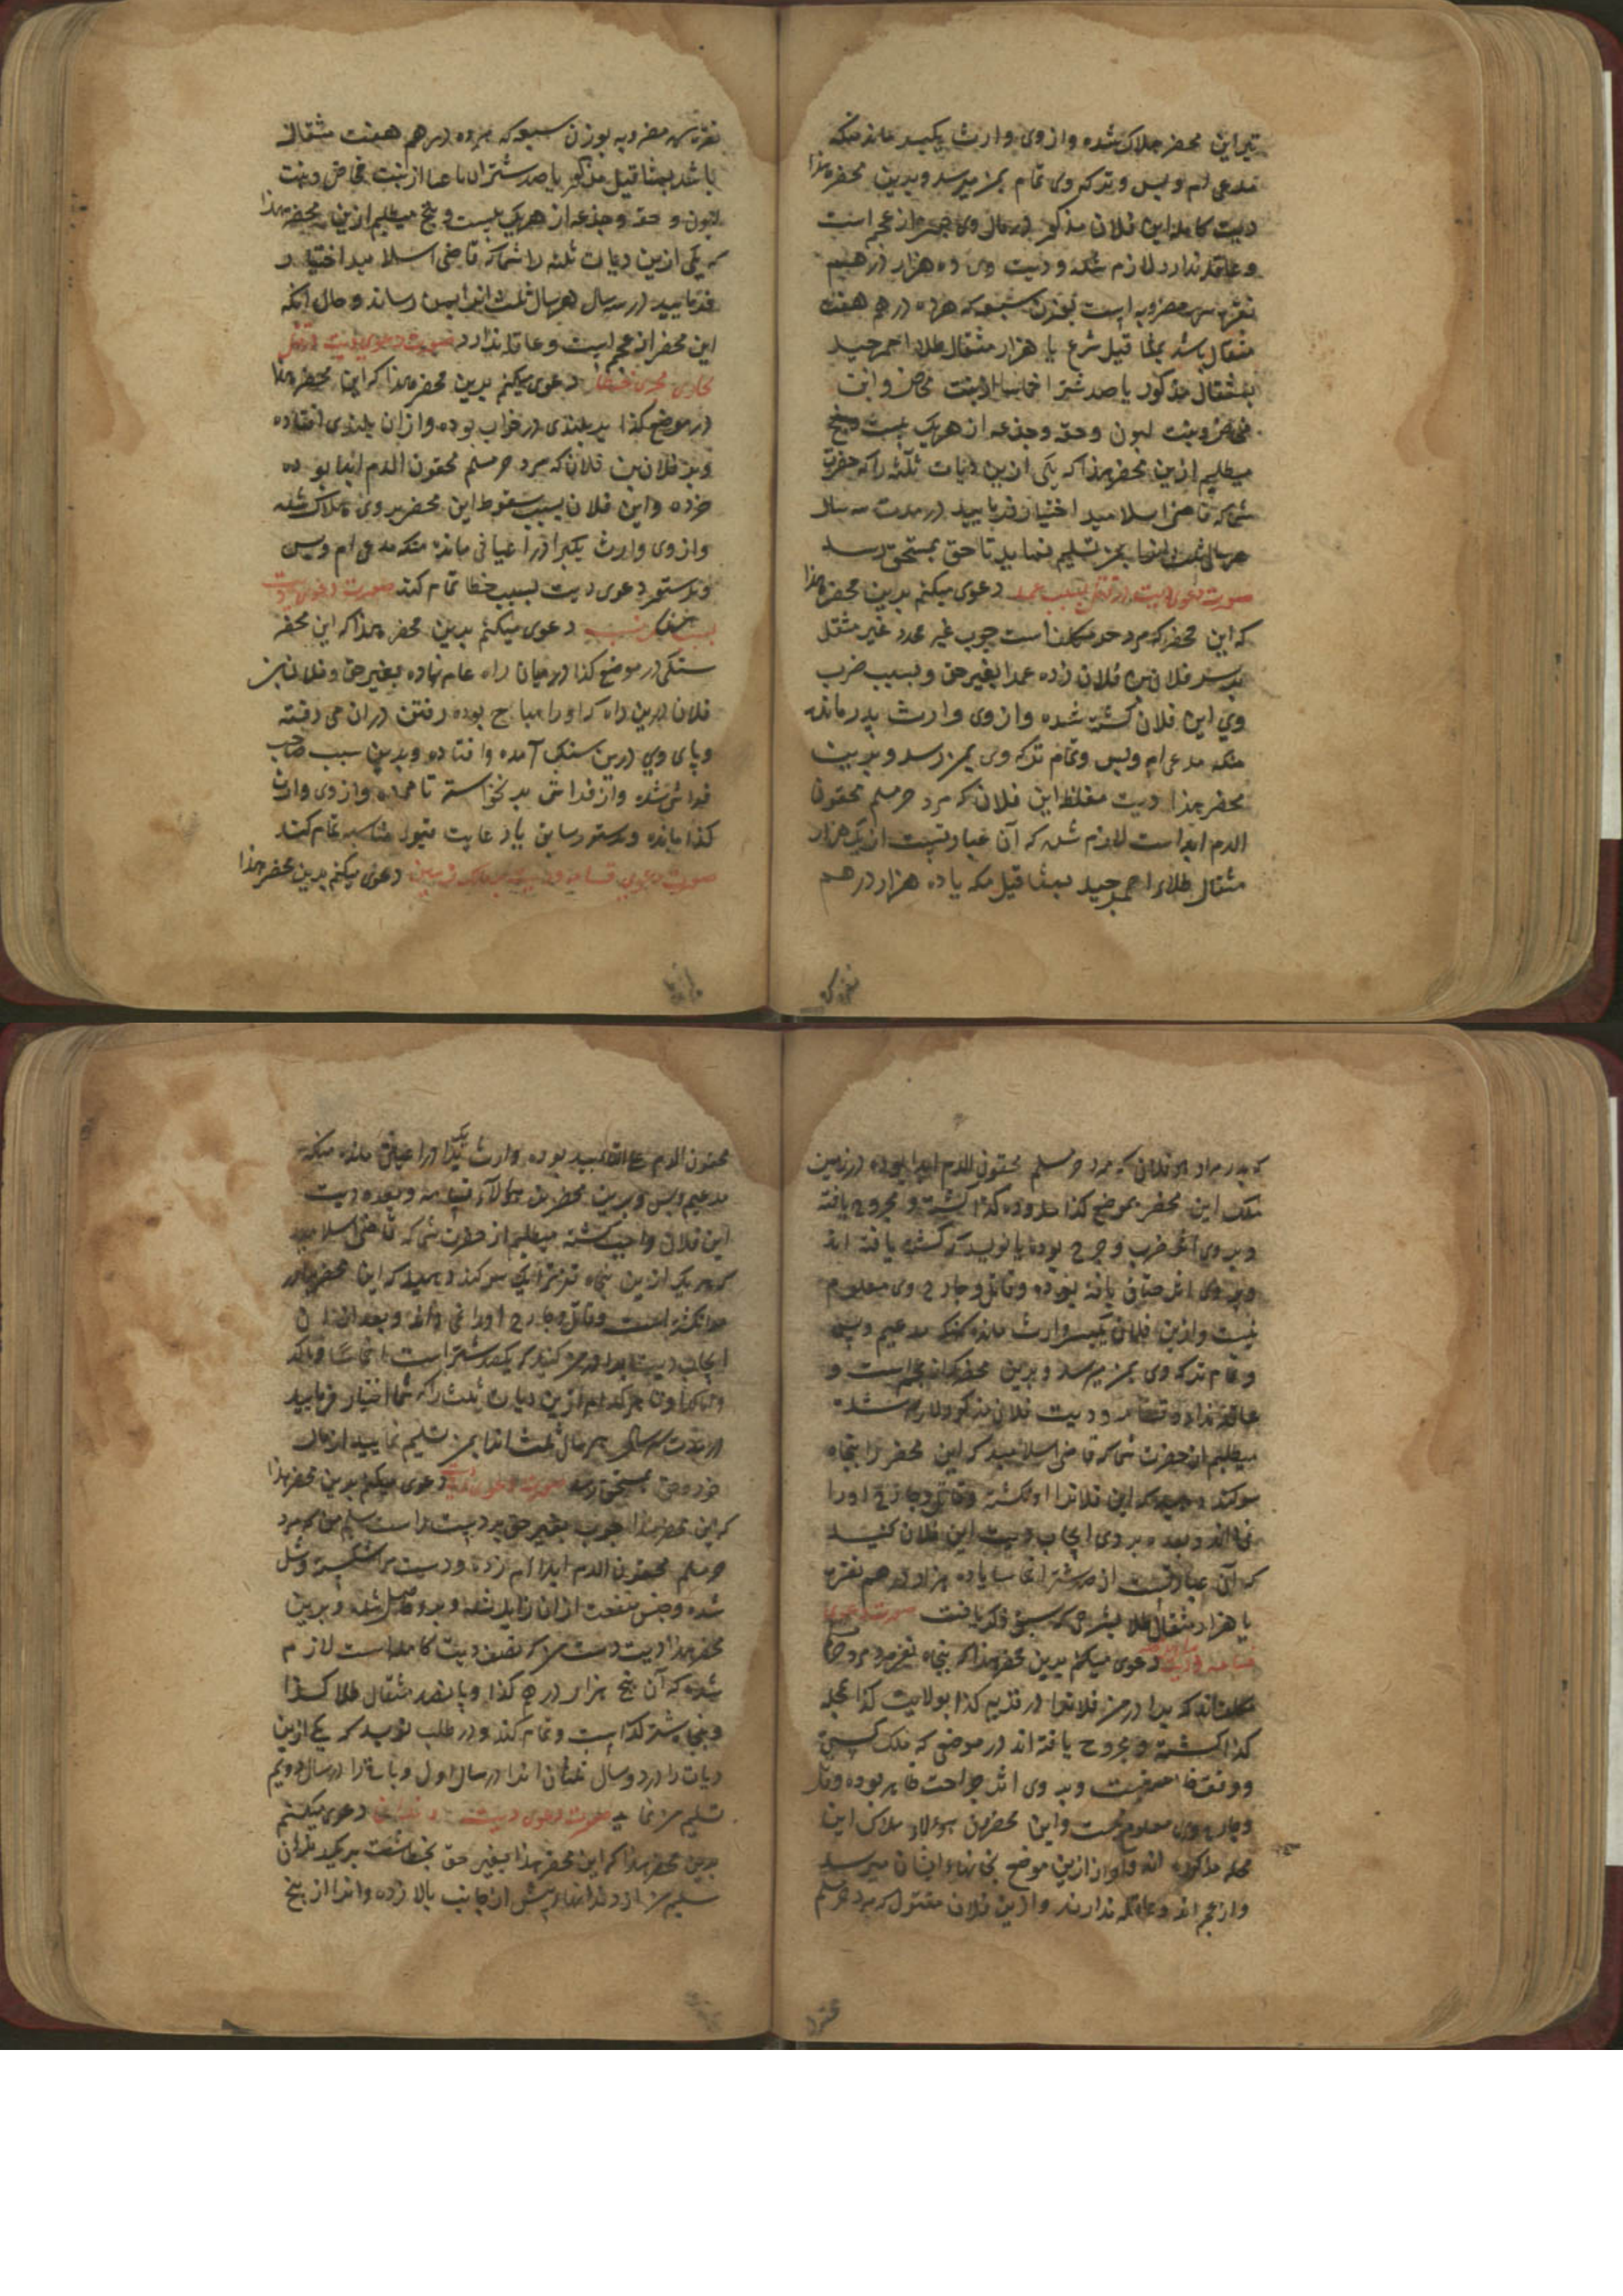 تیر این محضر هلاک شده و از وی وارث یکپسر مانده منکه
مدعی ام و بس و ترکه وی تمام بمن میرسد و بدین محضر هذا
دیت کامله این فلان مذکور در مال وی از عجم است
و عاقله ندارد لازم شده و دیت وی ده هزار درهم
نقره سره مضروبه است بوزن سبعه که هر ده درهم هفت
مثقال باشد بمثاقیل شرع یا هزار مثقال طلا احمر جید
بمثقال مذکور یا صد شتر اخماسا از بنت مخاض و ابن
مخاض و بنت لبون و حقه و جذعه از هر یک بیست و پنج
میطلبم ازین محضر هذا که یکی ازین دیات ثلثه را که حضرت
شما که قاضی اسلامید اختیار فرمایید در مدت سه سال
هر سالی ثلث انرا بمن تسلیم نماید تا حق بمستحق رسد
صورت دعوی دیت در قتل بسبب عمد دعوی میکنم بدین محضر هذا
که این محضر که مرد حر مکلف است چوب غیر محدد غیر مثقل
بر سر فلان بن فلان زده عمدا بغیر حق و بسبب ضرب
وی این فلان کشته شده و از وی وارث پدر مانده
منکه مدعی ام و بس و تمام ترکه وی بمن رسد و بدین
محضر هذا دیت مغلظ این فلان که مرد حر مسلم محقون
الدم ابدا است لازم شده که آن عبارتست از یک هزار
مثقال طلای احمر جید بمثاقیل مکه یا ده هزار درهم
نقره سره مضروبه بوزن سبعه که هر ده درهم هفت مثقال
باشد بمثاقیل مذکور یا صد شتر ارباعا از بنت مخاض و بنت
لبون و حقه و جذعه از هر یک بیست و پنج میطلبم ازین محضر هذا
که یکی ازین دیات ثلثه را شما که قاضی اسلامید اختیار
فرمایید در سه سال هر سال ثلث انرا بمن رساند و حال آنکه
این محضر از عجم است و عاقله ندارد صورت دعوی دیت در قتل
جاری مجری خطا دعوی میکنم بدین محضر هذا که این محضر هذا
در موضع کذا بر بلندی در خواب بوده و از ان بلندی افتاده
و بر فلان بن فلان که مرد حر مسلم محقون الدم ابدا بوده
خرده و این فلان بسبب سقوط این محضر بر وی هلاک شده
و از وی وارث یکبرادر اعیانی مانده منکه مدعی ام و بس
و بدستور دعوی دیت بسبب خطا تمام کند صورت دعوی دیت
بسبب دعوی میکنم بدین محضر هذا که این محضر
سنگی در موضع کذا در میان راه عام نهاده بغیر حق و فلان بن
فلان درین راه که او را مباح بوده رفتن دران می رفته
و پای وی درین سنک آمده و افتاده و بدین سبب صاحب
فراش شده و از فراش بر نخواسته تا مرده و از وی وارث
کذا مانده و بدستور سابق با رعایت قیود مناسبه تمام کند
صورت دعوی قسامه و دیت دعوی میکنم بدین محضر هذا
که پدر مرا که فلان که مرد حر مسلم محقون الدم ابدا بوده در زمین
ملک این محضر بموضع کذا محدوده کذا کشته و مجروح یافته
و بر وی اثر ضرب و جرح بوده یا نوید که کشته یافته اند
و بر وی اثر خناق یافته بوده و قاتل و جارح وی معلوم
نیست و ازین فلان یکپسر وارث مانده منکه مدعیم و بس
و تمام ترکه وی بمن میرسد و بدین محضر که از عجم است و
عاقله ندارد قسامه و دیت فلان مذکور لازم شده
میطلبم از حضرت شما که قاضی اسلامید که این محضر را پنجاه
سوکند دهید که این فلانرا او نکشته و قاتل و جارح او را
نمیداند و بعده بر وی ایجاب دیت این فلان کنید
که آن عبارتست از صد شتر یا ده هزار درهم نقره
یا هزار مثقال طلا بشرحی که سبق ذکر یافت صورت دعوی
قسامه و دیت دعوی میکنم بدین محضر هذا که پنجاه نفر مرد حر
مکلف اند که پدر مرا فلانرا در قریه کذا بولایت کذا محله
کذا کشته و مجروح یافته اند در موضعی که ملک کسی
و وقف خاص نیست و بر وی اثر جراحت ظاهر بوده و قاتل
و جارح وی معلوم نیست و این محضر هؤلاء ملاک این
محله مذکوره اند و آواز ازین موضع بخانهاء ایشان میرسد
و از عجم اند و عاقله ندارند و ازین فلان مقتول که مرد حر مسلم
محقون الدم بوده وارث یک برادر اعیانی مانده منکه
مدعیم و بس و بدین محضر هؤلاء قسامه و بعده دیت
این فلان واجب گشته میطلبم از حضرت شما که قاضی اسلامید
که هر یک ازین پنجاه نفر را یک سوکند دهید که این محضر
را نکشته است و قاتل و جارح او را نمی داند و بعد از ان
ایجاب دیت کنید که یکصد شتر است
هر کدام ازین دیات ثلث را که شما اختیار فرمایید
در مدت سه سال هر سال ثلث انرا بمن تسلیم نمایید از مال
خود و حق بمستحق رسد صورت دعوی دیت دعوی میکنم بدین محضر هذا
که این محضر هذا چوب بغیر حق بر دست راست من که مرد
حر مسلم محقون الدم ابدا ام زده و دست مرا شکسته و شل
شده و جنس منفعت از ان زایل شده و بدین
محضر هذا دیت دست مرا که نصف دیت کامله است لازم
شده که آن پنج هزار درهم کذا و پانصد مثقال طلا کذا
و پنجاه شتر کذا است و تمام کند و در طلب نوید که یکی ازین
دیات را در دو سال ثلثان انرا در سال اول و باقی را در سال دویم
تسلیم من نماید صورت دعوی دیت دندان دعوی میکنم
بدین محضر هذا که این محضر هذا بغیر حق بخطا مشت بر یک دندان
سلیم من از دندانهاء پیش از جانب بالا زده و انرا از بیخ